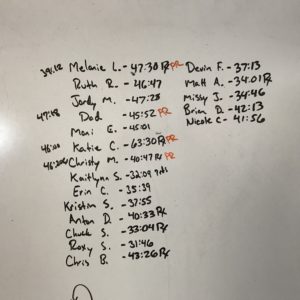 39:12 Melanie L. - 47:30 Rx PR
Ruth R. - 46:47
Jordy M. - 47:25
47:18 Dad - 45:52 PR
Mani G. - 45:01
Katie C. - 63:30 Rx PR
Christy M. - 40:47 Rx PR
Kaitlynn S. - 32:09
Erin C. - 35:39
Kristin S. - 37:55
Anton D. - 40:33 Rx
Chuck S. - 33:04 Rx
Roxy S. - 31:46
Chris B. - 43:26 Rx
Devin F. - 37:13
Matt A. - 34:01 Rx
Missy J. - 34:46
Brian D. - 42:13
Nicole C - 41:56